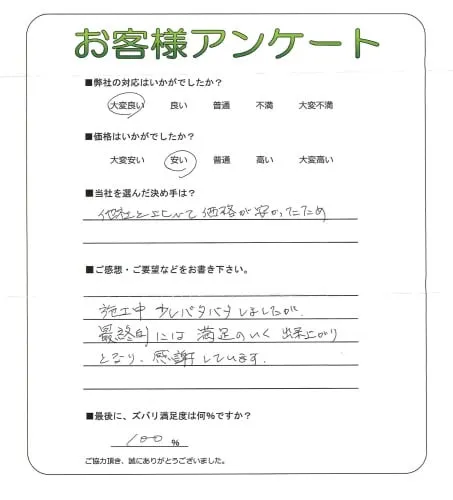 お客様アンケート
■弊社の対応はいかがでしたか？
大変良い 良い 普通 不満 大変不満
■価格はいかがでしたか？
大変安い 安い 普通 高い 大変高い
■当社を選んだ決め手は？
他社と比べて価格が安かったため
■ご感想・ご要望などをお書き下さい。
施工中 少しバタバタしましたが、
最終的には 満足のいく 出来上がり
となり、感謝しています。
■最後に、ズバリ満足度は何％ですか？
100 %
ご協力頂き、誠にありがとうございました。